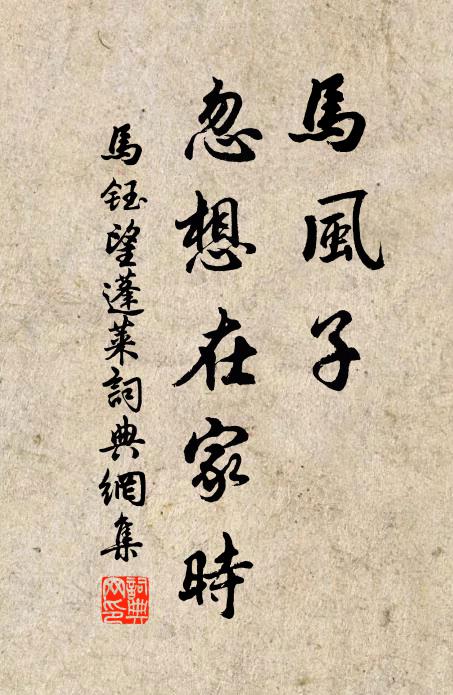 馬風子
忽想在家時
馬鈺望蓬萊詞典網集
詞典網印